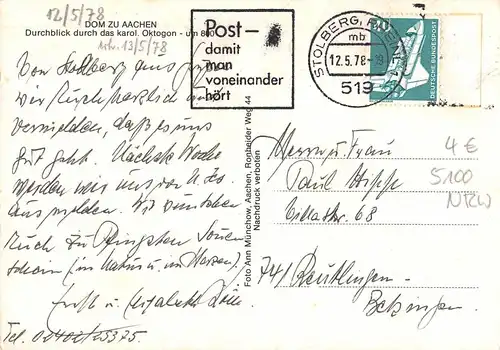 12/5/78
DOM ZU AACHEN
Durchblick durch das karol. Oktogon - um 800
13/5/78
Post-
damit
man
voneinander
hört
STOLBERG, RHEINL 1
mb
12.5.78-19
519
DEUTSCHE BUNDESPOST
Von Stolberg aus
wir Euch herzlich u.
vermelden, daß es uns
gut geht. Nächste Woche
werden wir uns von
ausmelden. Wir wünschen
Euch zu Pfingsten Sonnen-
schein (im Natur u. im Herzen).
Tel. 02402/25375
Foto Ann Münchow, Aachen, Ronheider Weg 44
Nachdruck verboten
Herrn u. Frau
Paul
68
741 Reutlingen-
Betzingen
4 €
5100
NRW